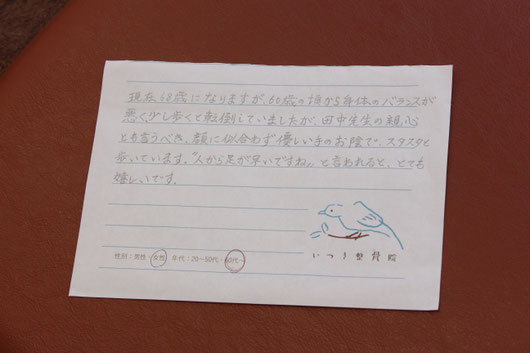 現在、68歳になりますが、60歳の頃から身体のバランスが
悪く、少し歩くと転倒していましたが、田中先生の親心
とも言うべき、顔に似合わず優しい手のお陰で、スタスタと
歩いています。"人から足が早いですね〟と言われると、とても
嬉しいです。
いつき整骨院
性別：男性・女性 年代：20〜50代・60代〜